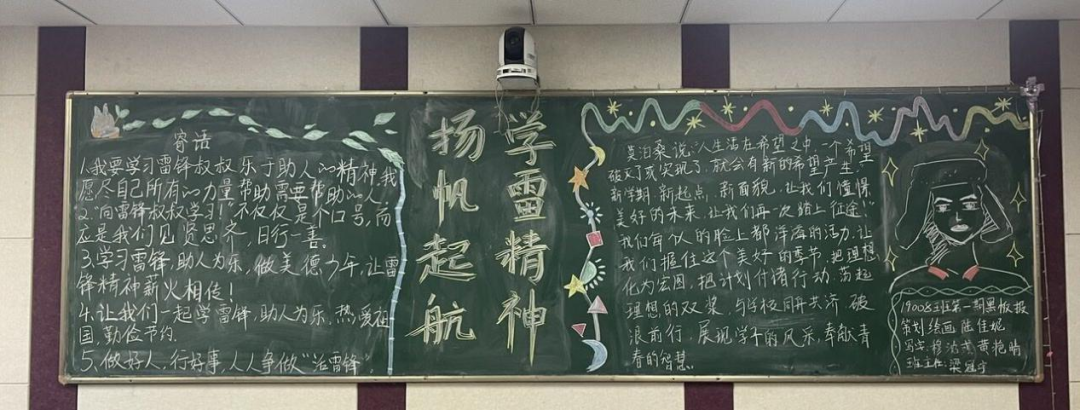 寄语
1.我要学习雷锋叔叔乐于助人的精神,我
愿尽自己所有的力量帮助需要帮助的人
2."向雷锋叔叔学习!"不仅仅是个口号,而
应是我们见贤思齐,日行一善。
3.学习雷锋,助人为乐,做美德少年,让雷
锋精神薪火相传!
4.让我们一起学雷锋,助人为乐,热爱祖
国,勤俭节约.
5、做好人,行好事,人人争做"活雷锋"
学雷精神
扬帆起航
莫泊桑说:"人生活在希望之中,一个希望
破灭了或实现了,就会有新的希望产生."
新学期,新起点,新面貌,让我们憧憬
美好的未来,让我们再一次踏上征途!
我们每个人的脸上都洋溢的活力,让
我们握住这个美好的季节,把理想
化为宏图,把计划付诸行动,荡起
理想的双桨,与学校同舟共济,破
浪前行,展现学子的风采,奉献青
春的智慧.
班第一期黑板报
策划绘画 陆佳妮
写字: 黄艳晴
班主任: 梁冠宇